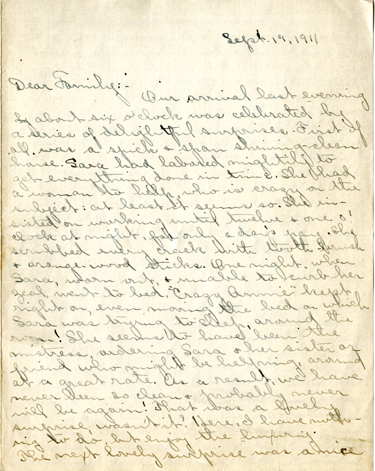 Sept. 19, 1911
Dear Family:-
Our arrival last evening
by about six o'clock was celebrated by
a series of delightful surprises. First of
all was a spick & span shining-clean
house. Sara had labored mightily to
get everything done in time. She had
a woman to help who is crazy on the
subject: at least it seems so. She in-
sisted on working until twelve & one o'
clock at night, for only a day's pay. She
scrubbed every crack with tooth brush
& orange-wood sticks. One night, when
Sara, worn out, & unable to curb her
zeal, went to bed, "Crazy Annie" kept
right on, even moving the bed on which
Sara was trying to sleep, around the
room! She seems to have been the
mistress, ordering Sara & her sister or
friend who might be helping, around
at a great rate. As a result, we have
never been so clean & probably never
will be again! That was a lovely
surprise, wasn't it! Here, I have noth-
ing to do, but enjoy the luxury.
The next lovely surprise was a nice